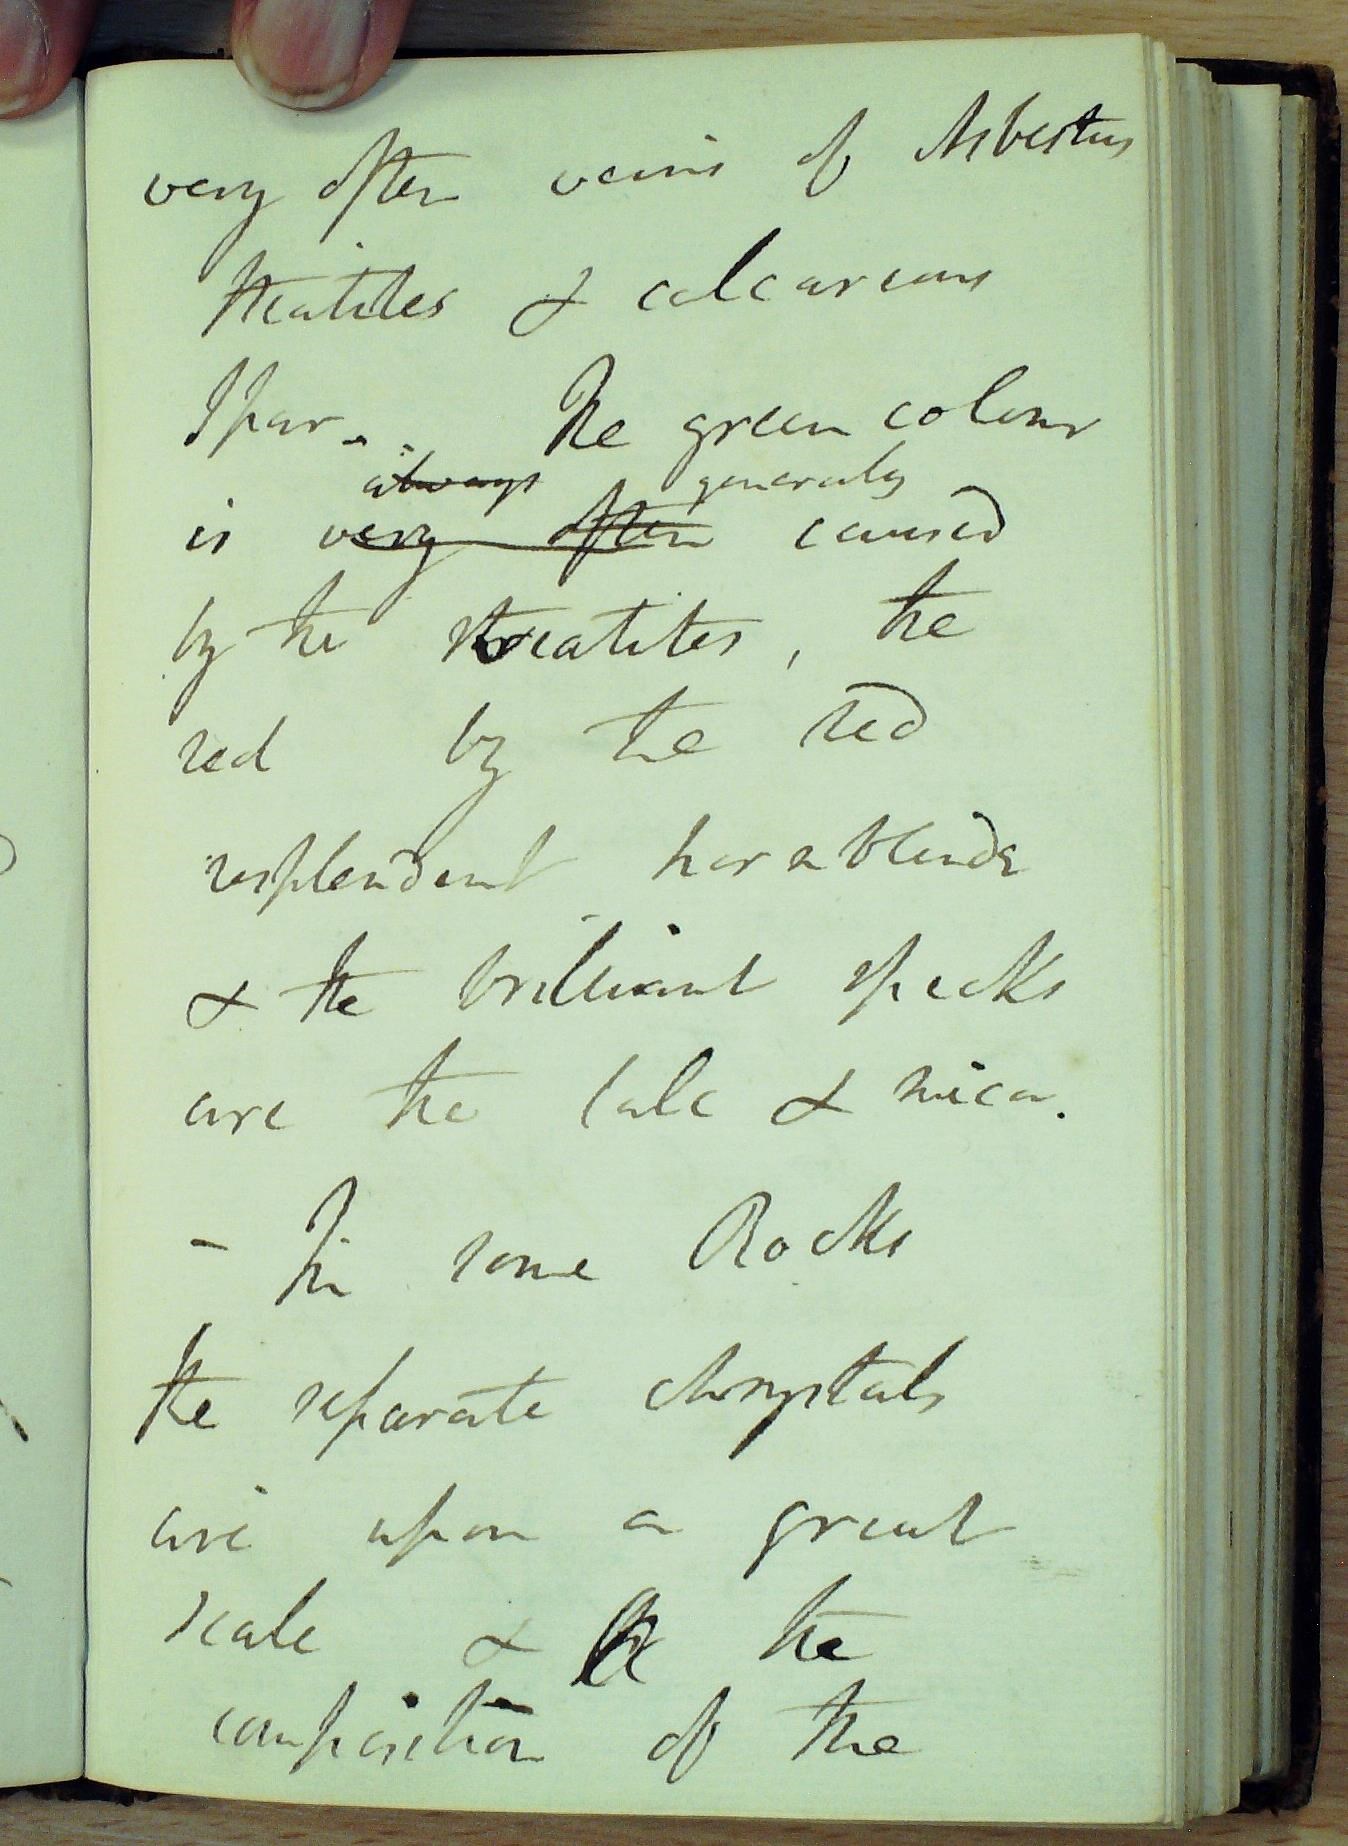 very often veins of Asbestus
steatites & calcareous
Spar -. The green colour
always generally
is very often caused
by the steatites, the
red by the red
resplendent hornblende
& the brilliant specks
are the talc & mica.
- In some Rocks
the separate chrystals
are upon a great
scale & the
composition of the